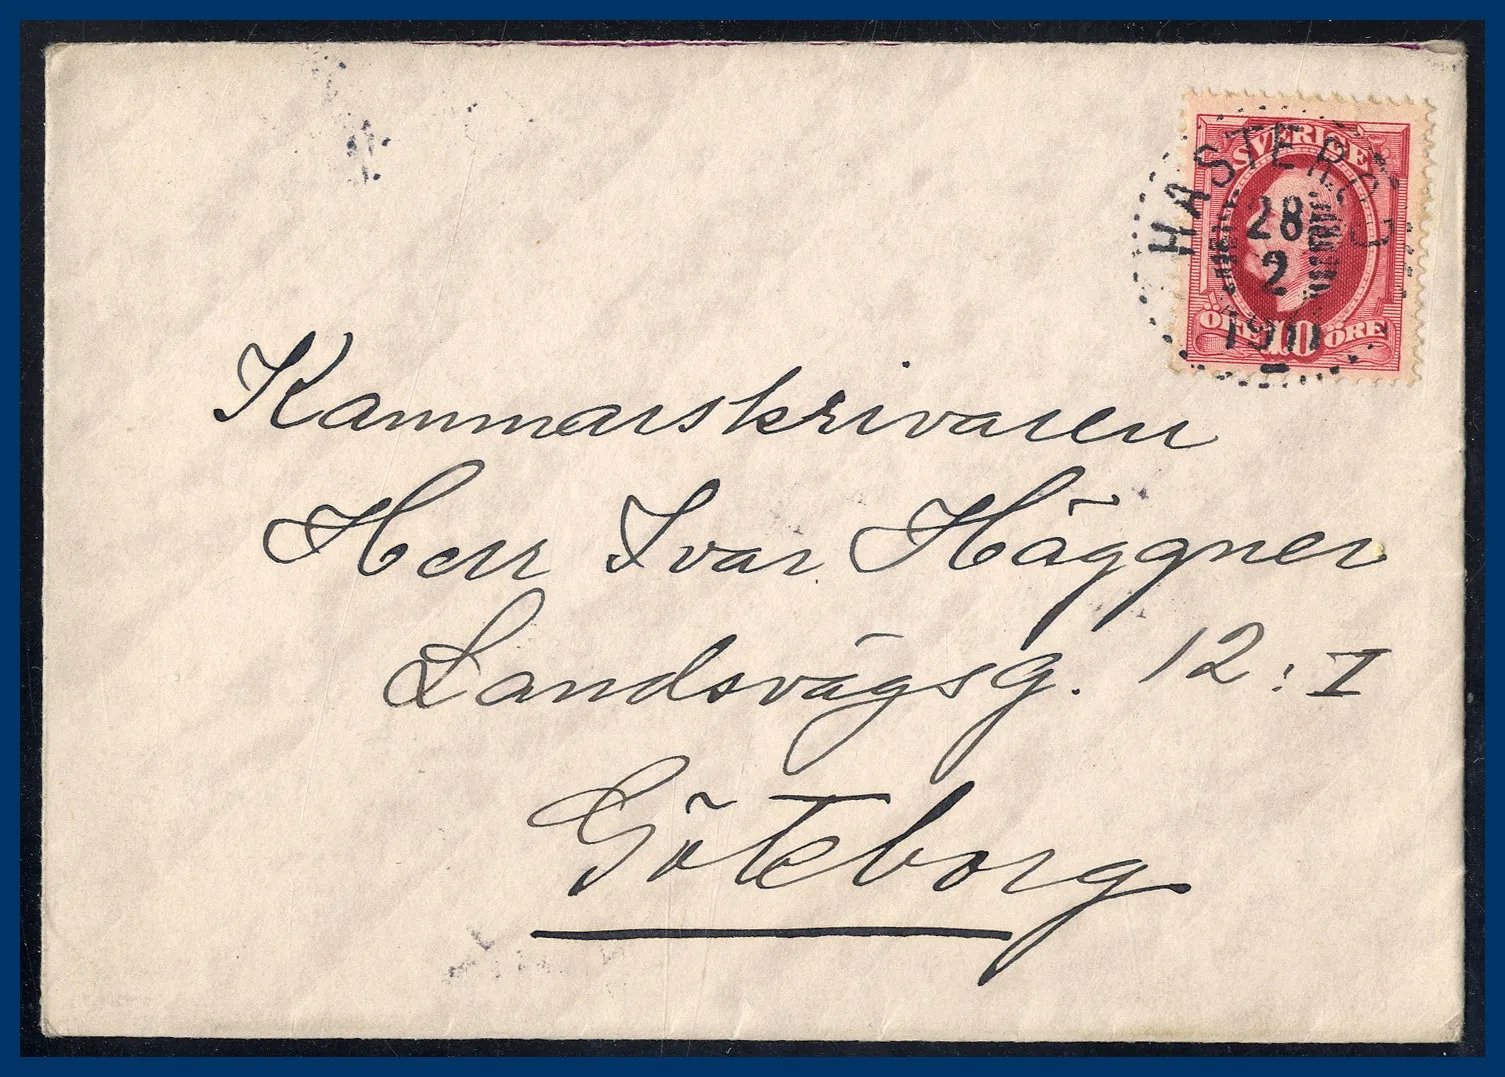 SVERIGE
HASTERUD
28
2
1911
ÖRE 10 ÖRE
Kammarskrivaren
Herr Ivar Häggner
Landsvägsg. 12: I
Göteborg